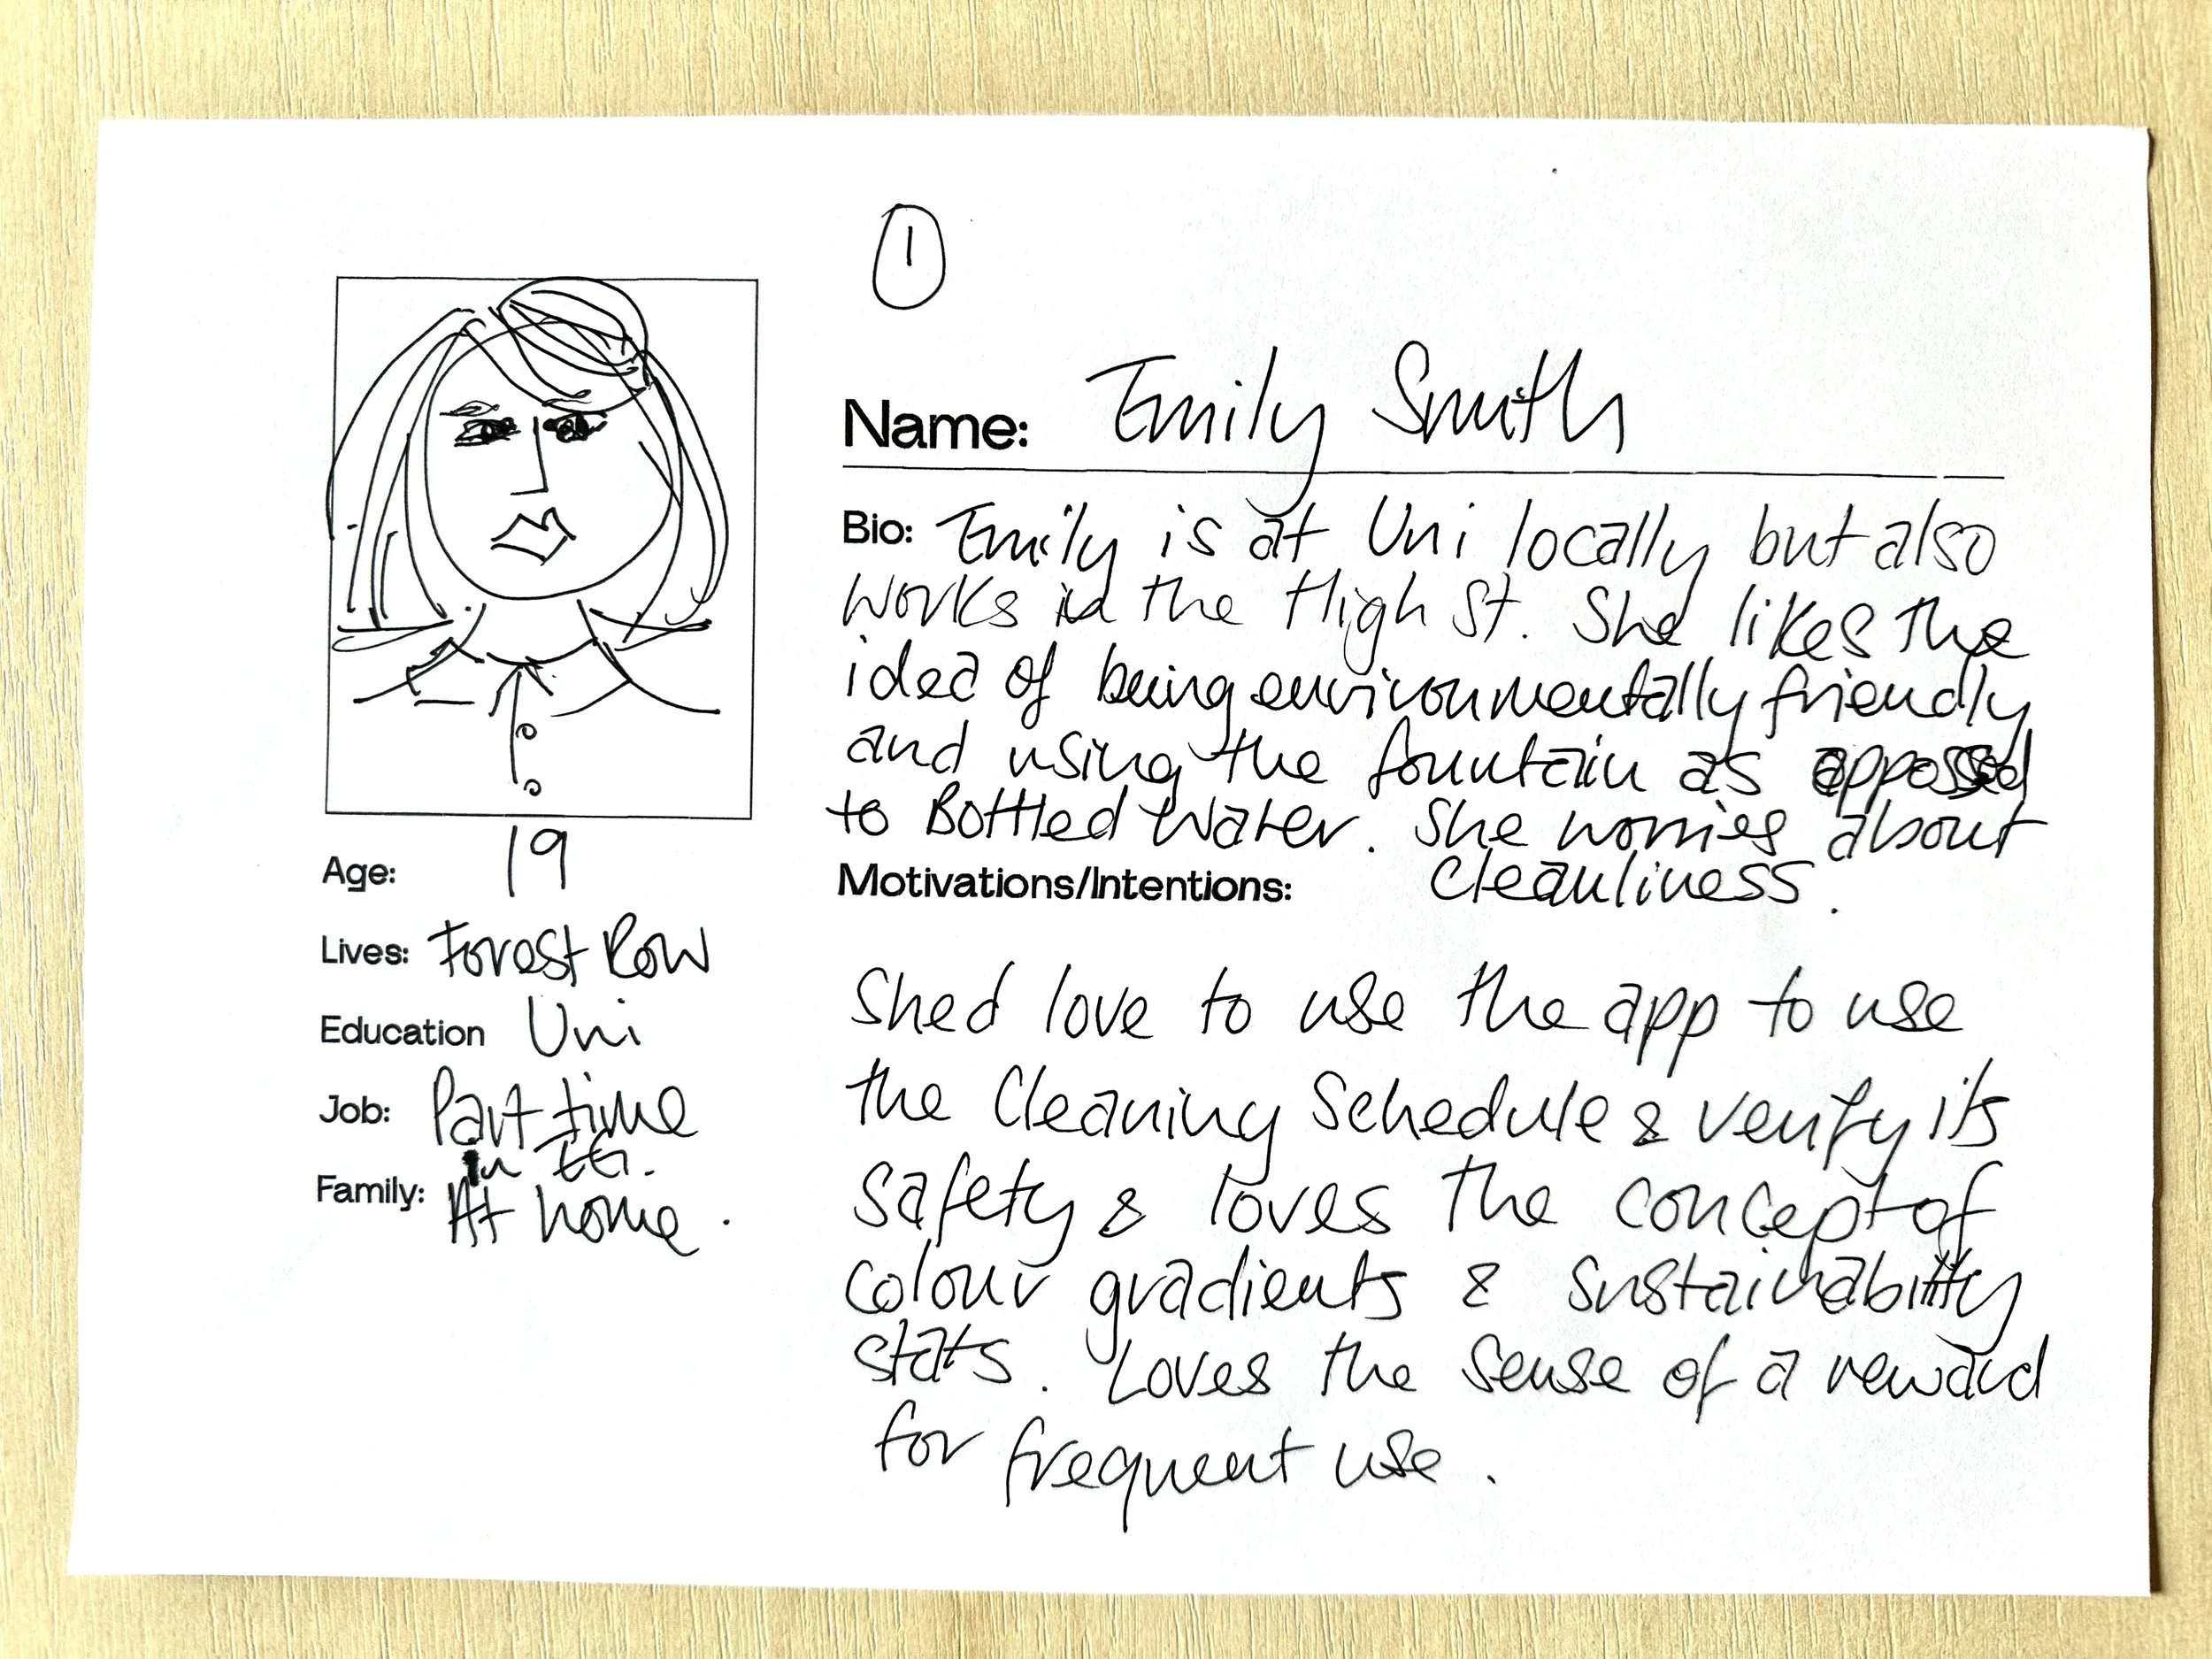 1
Name: Emily Smith
Bio: Emily is at Uni locally but also
works in the High St. She likes the
idea of being environmentally friendly
and using the fountain as apposed
to Bottled Water. She worries about
cleanliness.
Age: 19
Lives: Forest Row
Education Uni
Job: Part time
in EG.
Family: At home.
Motivations/Intentions:
Shed love to use the app to use
the Cleaning Schedule & verify its
safety & loves the concept of
colour gradients & sustainability
stats. Loves the sense of a reward
for frequent use.